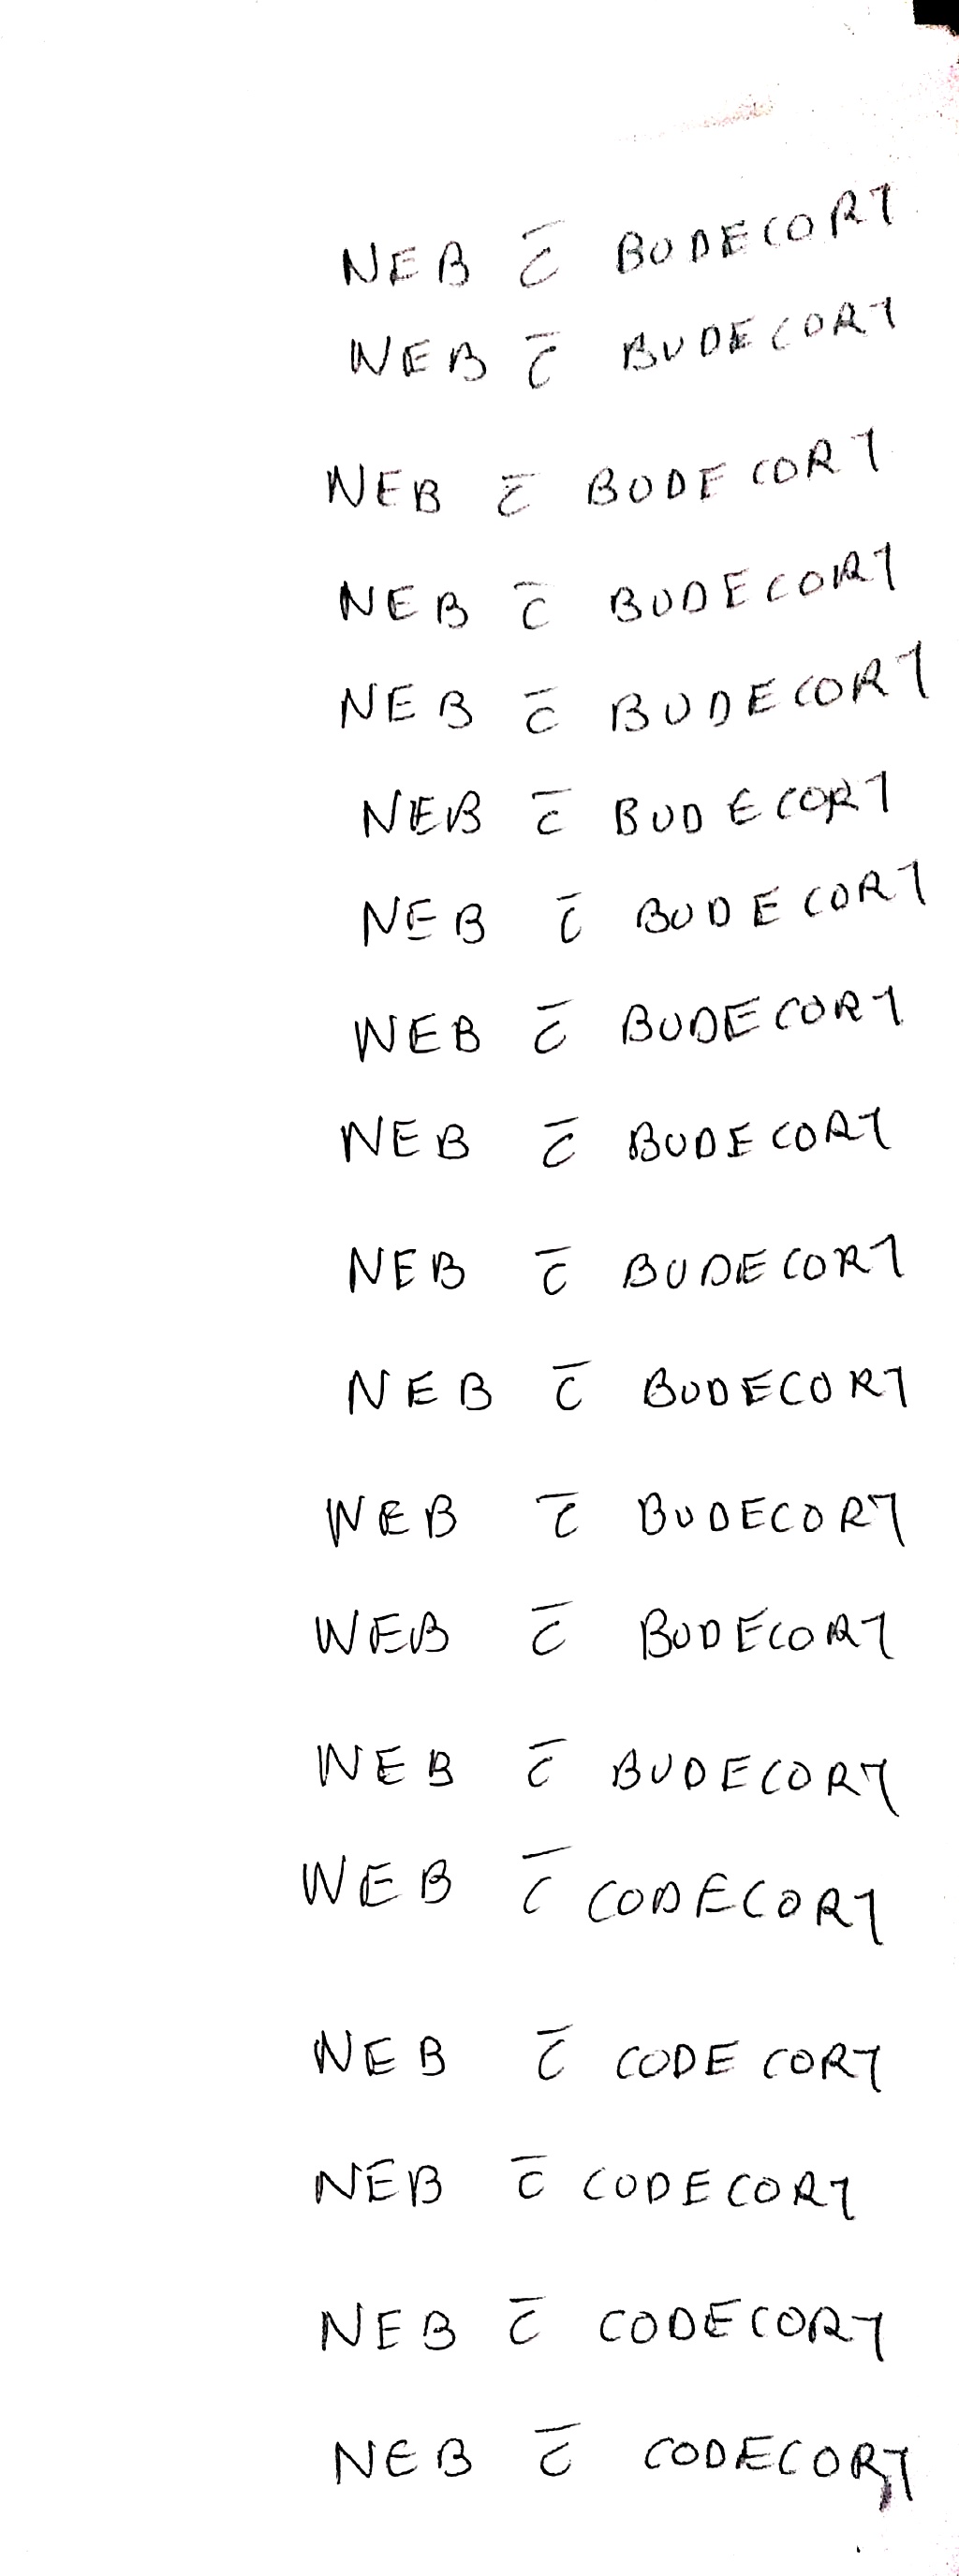 NEB c̄ BUDECORT
NEB c̄ BUDECORT
NEB c̄ BUDECORT
NEB c̄ BUDECORT
NEB c̄ BUDECORT
NEB c̄ BUDECORT
NEB c̄ BUDECORT
NEB c̄ BUDECORT
NEB c̄ BUDECORT
NEB c̄ BUDECORT
NEB c̄ BUDECORT
NEB c̄ BUDECORT
NEB c̄ BUDECORT
NEB c̄ BUDECORT
NEB c̄ CODECORT
NEB c̄ CODECORT
NEB c̄ CODECORT
NEB c̄ CODECORT
NEB c̄ CODECORT